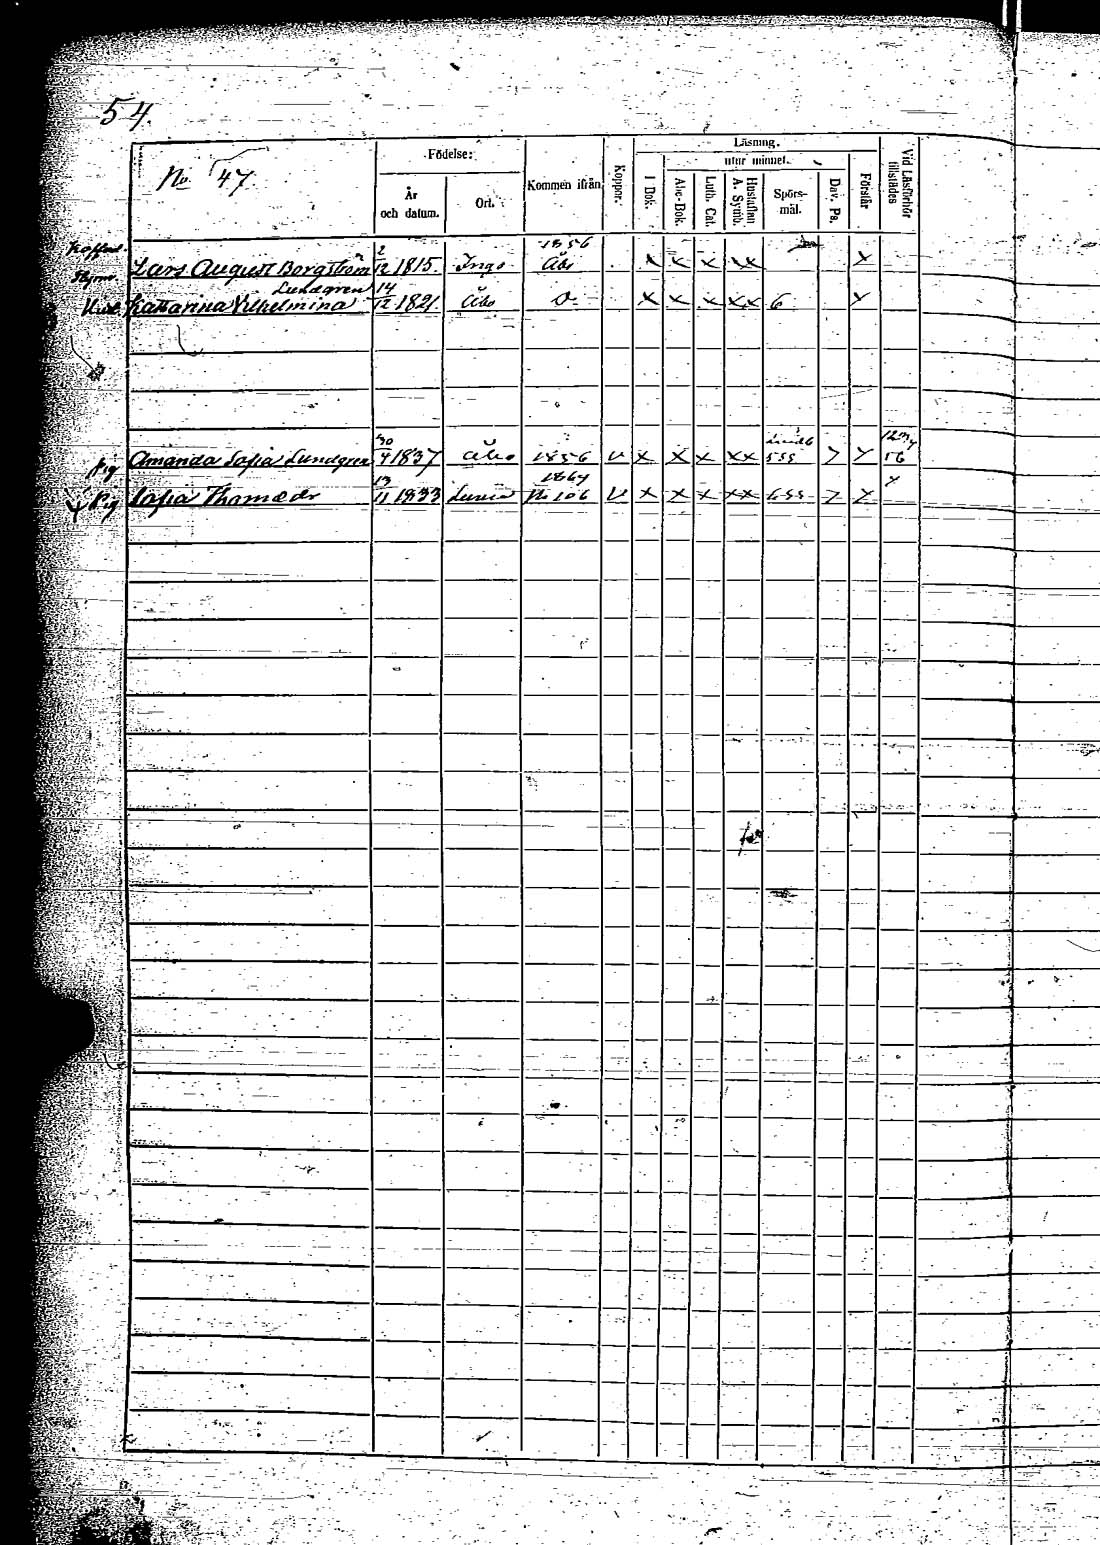 54.
No 47.
Födelse:
År
och datum.
Ort.
Kommen ifrån
Koppor.
Läsning.
utur minnet.
I Bok.
Abc-Bok.
Luth. Cat.
Hustaflan
A. Symb.
Spörs-
mål.
Dav. Ps.
Förstår
Vid Läsförhör
tillstädes
Lars August Borgström 2/12 1815. Ingo 1856 Åbo x x x xx x
Lundgren
Katharina Vilhelmina 14/12 1821. Åbo D:o x x x xx 6 x
Pig Amanda Sofia Lundgren 30/4 1837 Åbo 1856 v x x x xx 555 7 x 56
Pig Sofia Thomædr 13/11 1833 1864 No 106 v x x x xx 655 7 x x